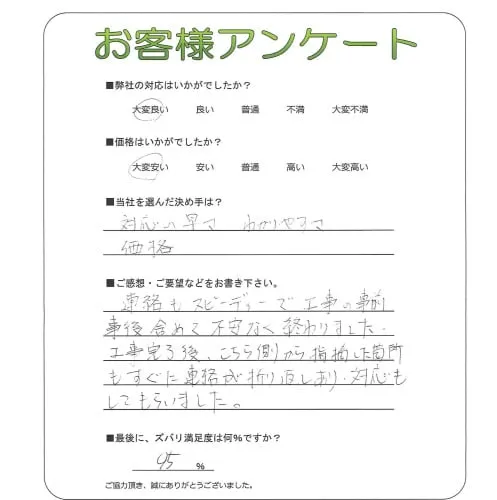 お客様アンケート
■弊社の対応はいかがでしたか？
大変良い 良い 普通 不満 大変不満
■価格はいかがでしたか？
大変安い 安い 普通 高い 大変高い
■当社を選んだ決め手は？
対応の早さ わかりやすさ
価格
■ご感想・ご要望などをお書き下さい。
連絡もスピーディーで工事の事前
事後含めて不安なく終わりました。
工事完了後、こちら側から指摘した箇所
もすぐに連絡が折り返しあり、対応も
してもらいました。
■最後に、ズバリ満足度は何%ですか？
95 %
ご協力頂き、誠にありがとうございました。